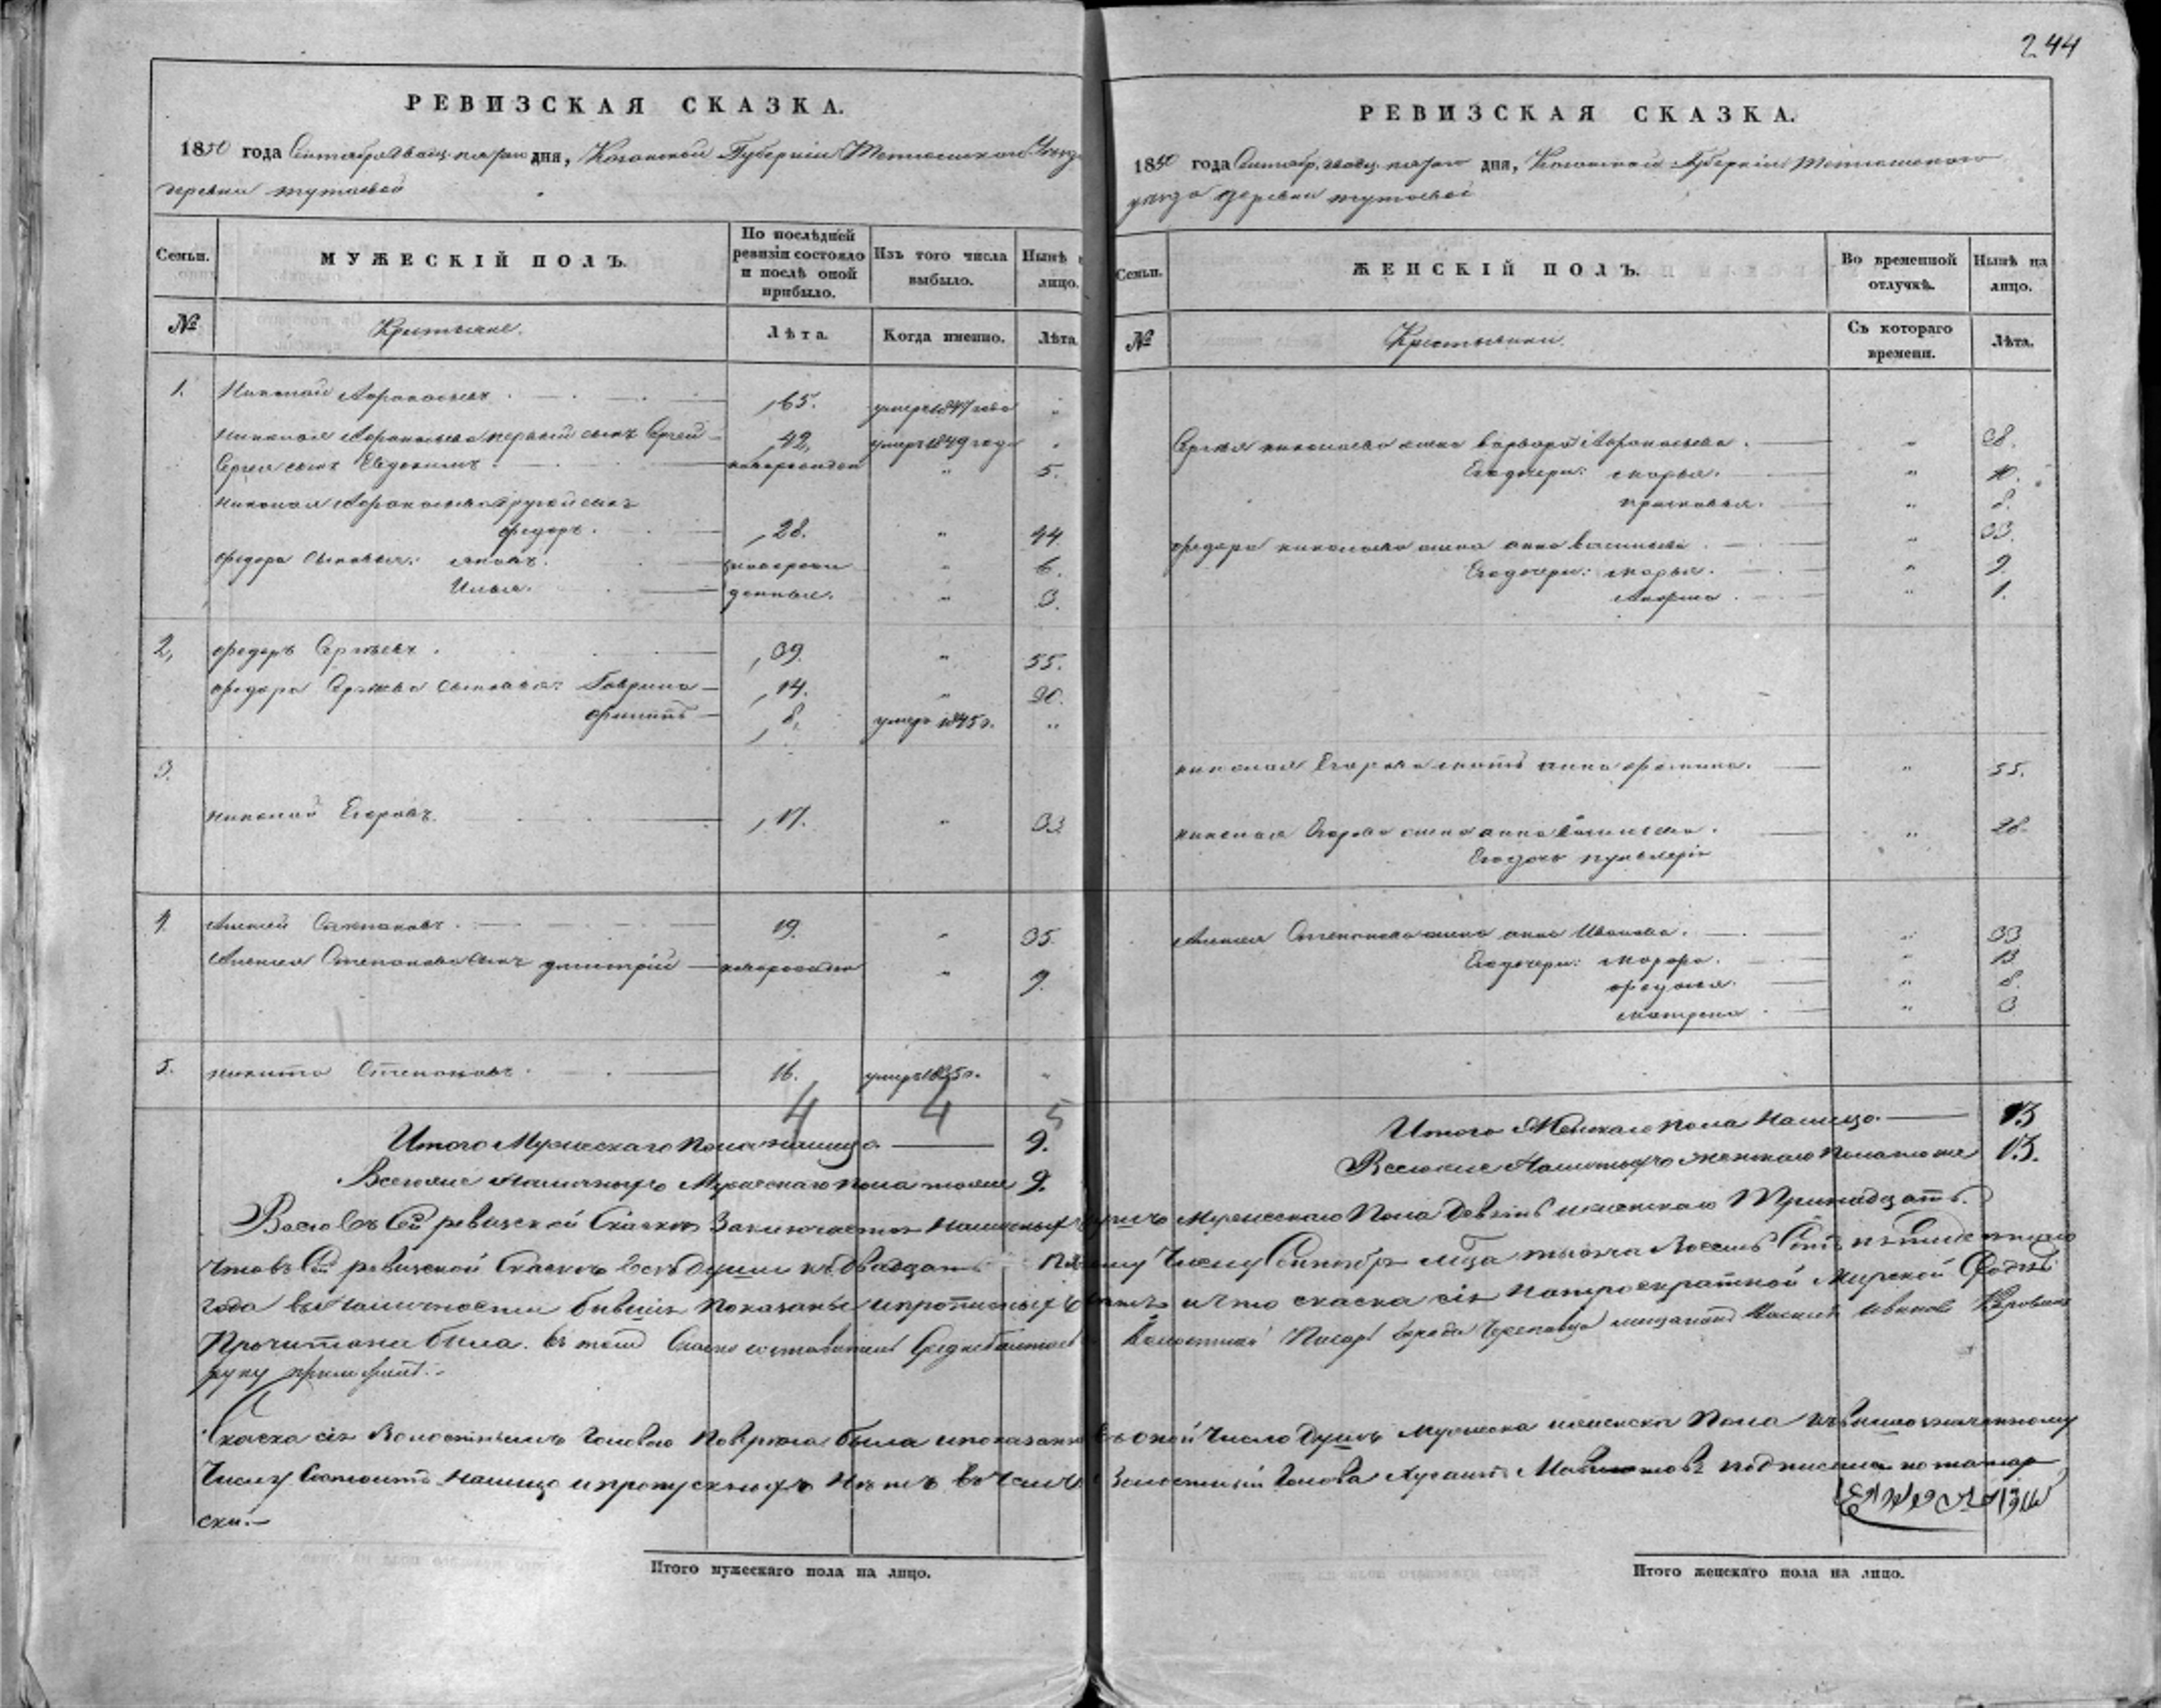 244
РЕВИЗСКАЯ СКАЗКА.
1850 года Сентября двадц. пятаго дня, Казанской Губернiи Тетюшскаго Уезда
деревни тутаевой
Семьи.
МУЖЕСКІЙ ПОЛЪ.
По послѣдней ревизіи состояло и послѣ оной прибыло.
Изъ того числа выбыло.
Нынѣ лицо.
№
Крестьяне.
Лѣта.
Когда именно.
Лѣта
1. Николай Афонасьевъ 65. умеръ 1847 года "
Николая Афонасьева первый сынъ Сергей 42, умеръ 1849 года "
Сергея сынъ Евдокимъ новорожден " 5.
Николая Афонасьева другой сынъ
федоръ. 28. " 44.
федора сыновья: яковъ. новорож " 6.
Илья. денныя. " 3.
2, федоръ Сергѣевъ 39. " 55.
федора Сергѣева сыновья: Гаврила 14. " 30.
филипъ 8, умеръ 1845 г. "
3.
николай Егоровъ 17. " 33
4. Алексей Степановъ 19. " 35.
Алексея Степанова сынъ дмитрiй новорожден " 9.
5. никита Степановъ 16. умеръ 1835 г. "
4 4 5
Итого Мужескаго Пола налицо 9.
Всего же Наличныхъ Мужескаго пола тоже 9.
РЕВИЗСКАЯ СКАЗКА.
1850 года Сентябр. двадц. пятаго дня, Казанской Губернiи Тетюшского
уезда деревни тутаевой
Семьи.
ЖЕНСКІЙ ПОЛЪ.
Во временной отлучкѣ.
Нынѣ на лицо.
№
Крестьянки.
Съ котораго времени.
Лѣта.
Сергея николаева жена варвара Афонасьева. " 38.
Его дочери: марья. " 10.
прасковья. " 8.
федора николаева жена анна васильева " 33.
Его дочери: марья. " 9.
" 1.
николая Егорова мать анна фомина. " 55.
николая Егорова жена анна васильева. " 28.
Его дочь пульхерiя
Алексея Степанова жена анна Иванова. " 33
Его дочери: марфа. " 13.
федосья. " 8.
матрена " 3
Итого Женскаго пола Налицо. 13
Всего же Наличныхъ женскаго пола тоже 13.
Всего въ Сей ревизской Сказкѣ Заключается Наличныхъ душъ Мужескаго Пола девять и женскаго Тринадцать.
Что въ Сей ревизской Сказкѣ всѣ души къ двадцать Пятому Числу Сентября мца тысяча восемь Сотъ пятидесятаго
года въ наличности бывшiя показаны и прописныхъ нетъ и что сказка сiя по троекратной Мирской Сходке
Прочитана была. въ томъ Сказке составитель Волостной Писарь города Череповца мещанинъ Иванов
руку приложилъ.
Сказка сiя Волостнымъ Головою поверена была и показанное въ оной Число Душъ Мужеска и женска Пола вышеозначенному
Числу Состоитъ Налицо и пропускныхъ Нетъ въ Чемъ Волостный Голова подписался по татар
ски.
Итого мужескаго пола на лицо.
Итого женскаго пола на лицо.